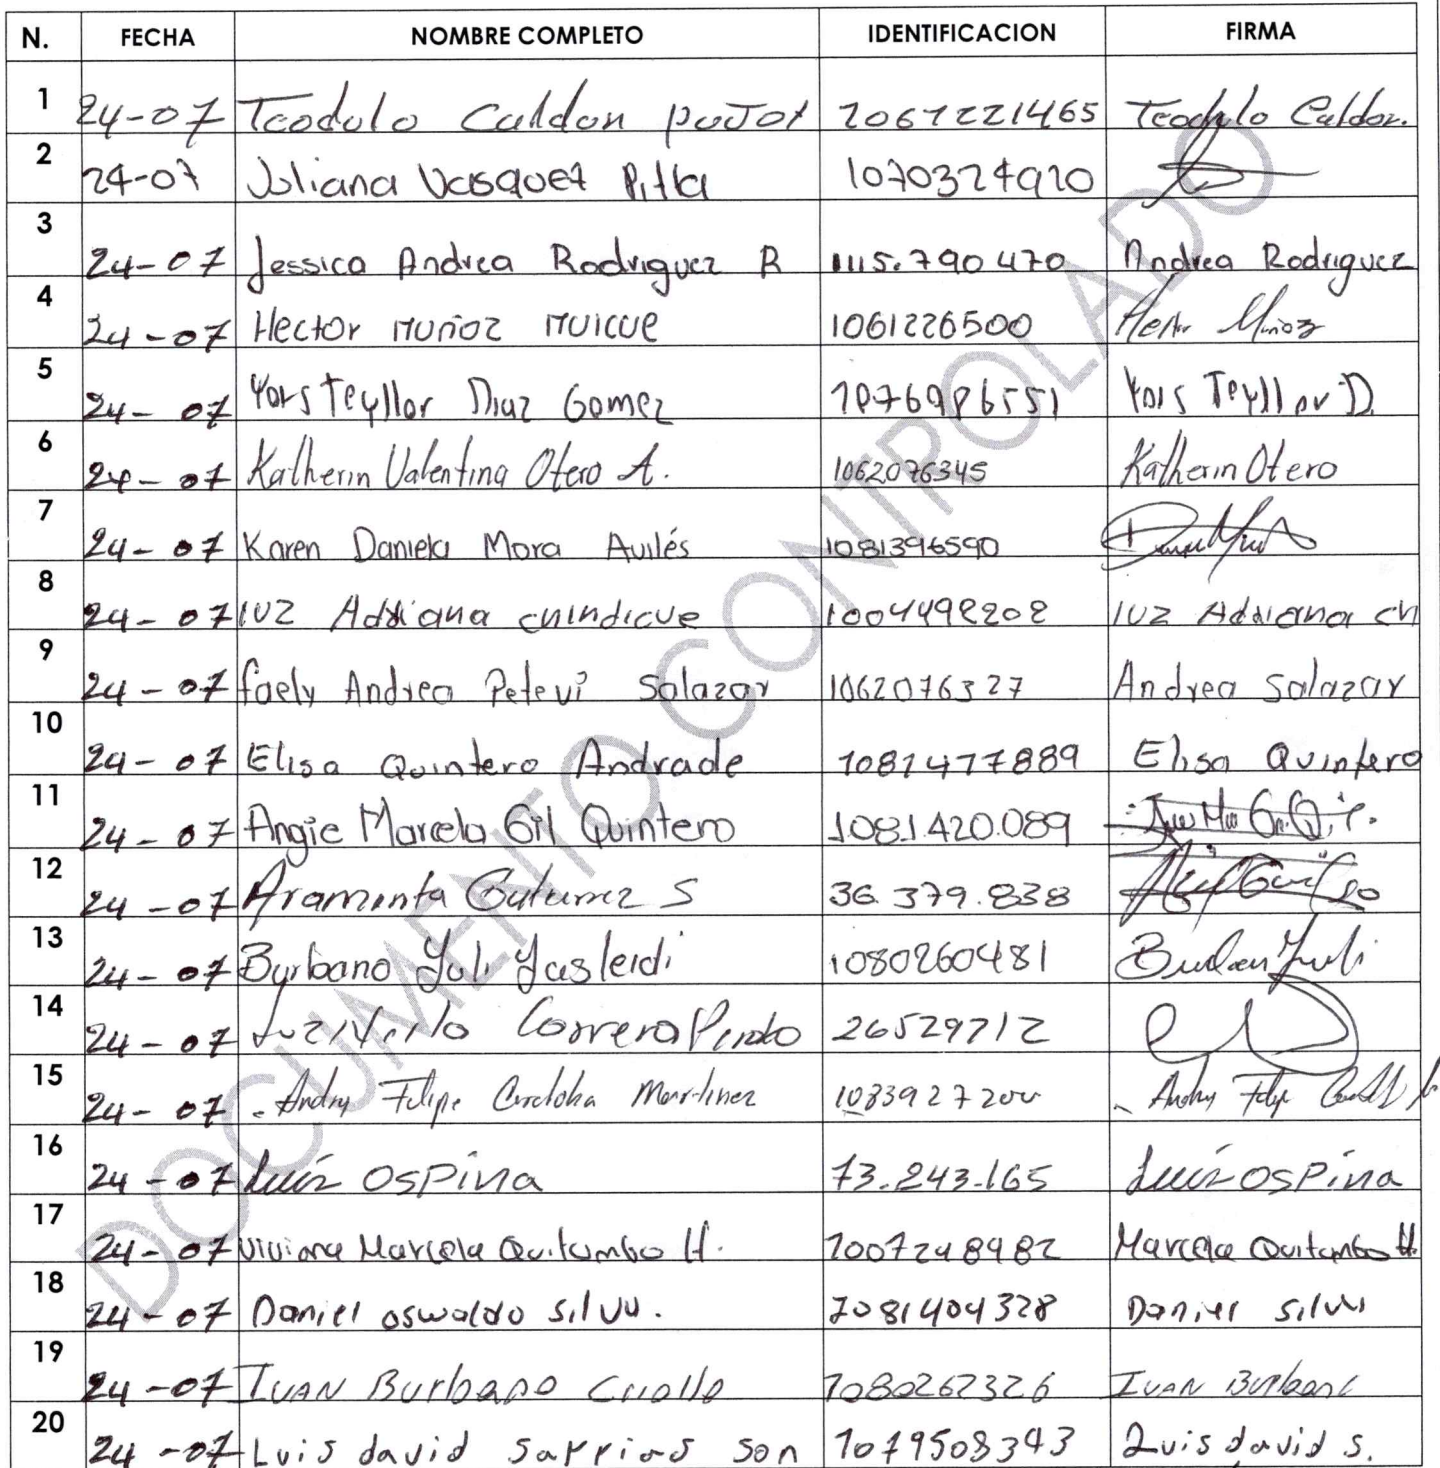 N. FECHA NOMBRE COMPLETO IDENTIFICACION FIRMA
1 24-07 Teodulo Caldon pujot 1061221465 Teodulo Caldon.
2 24-07 Juliana Vasquez Pitta 1070324920
3 24-07 Jessica Andrea Rodriguez R 1115.790470 Andrea Rodriguez
4 24-07 Hector Muñoz Muicue 1061226500 Hector Muñoz
5 24-07 Yors Teyllor Diaz Gomez 1076986551 Yors Teyllor D
6 24-07 Katherin Valentina Otero A. 1062076345 Katherin Otero
7 24-07 Karen Daniela Mora Avilés 1081396590
8 24-07 luz Adriana chindicue 1004498202 luz Adriana ch
9 24-07 faely Andrea Petevi Salazar 1062076327 Andrea Salazar
10 24-07 Elisa Quintero Andrade 1081477889 Elisa Quintero
11 24-07 Angie Marcela Gil Quintero 1081.420.089
12 24-07 Araminta Gutierrez S 36.379.838
13 24-07 Burbano Yuli Yasleidi 1080260481 Yuli
14 24-07 Correra 26529712
15 24-07 Andry Felipe Cordoba Martinez Andry Felipe
16 24-07 Luís Ospina 73.243.165 Luís Ospina
17 24-07 Viviana Marcela Quitumbo H. 1007248982 Marcela Quitumbo H.
18 24-07 Daniel oswaldo silva. 1081404328 Daniel silva
19 24-07 Ivan Burbano Criollo 1080262326 Ivan Burbano
20 24-07 Luis david sarrias son 1079508343 Luis david s.
DOCUMENTO CONTROLADO